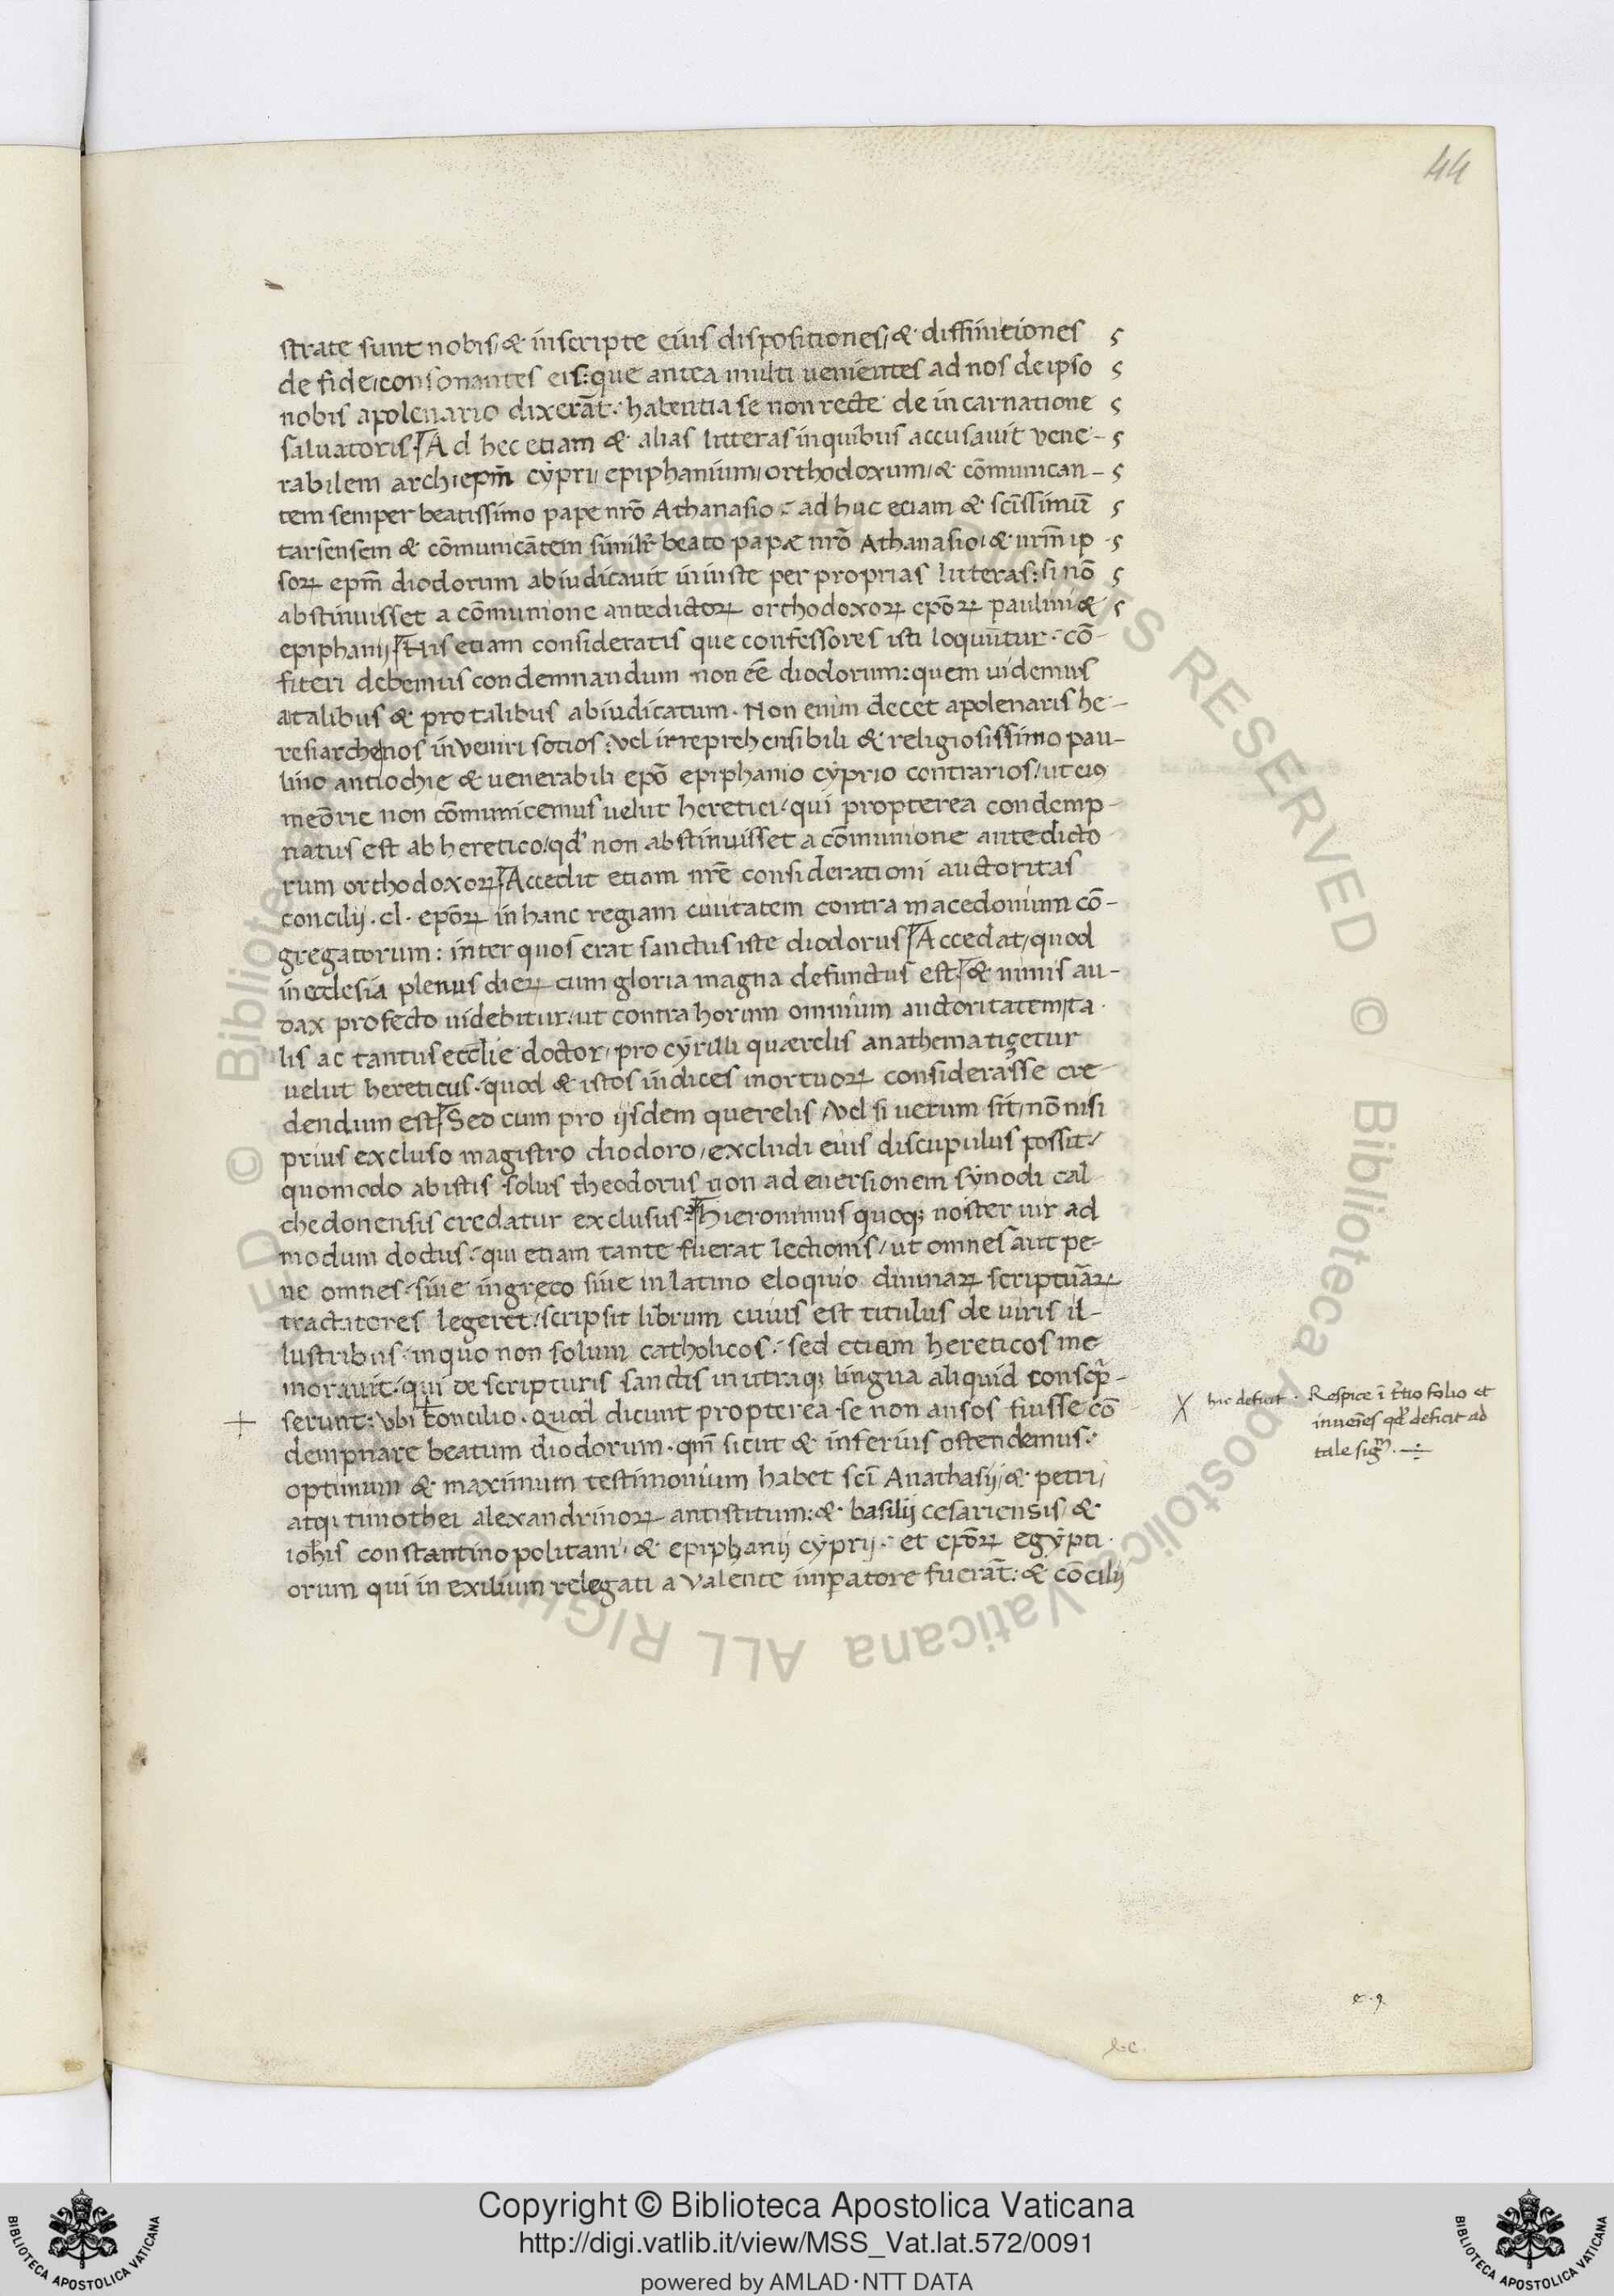 44
strate sunt nobis, & inscripte eius dispositiones, & diffinitiones
de fide, consonantes eis: que antea multi uenientes ad nos de ipso
nobis apolenario dixerāt: habentia se non recte de incarnatione
saluatoris. Ad hec etiam & alias litteras in quibus accusauit vene-
rabilem archiepm̄ cẏpri, epiphanium, orthodoxum, & cōmunican-
tem semper beatissimo pape nrō Athanasio: ad huc etiam & scīssimū
tarsensem & cōmunicātem simil'r beato papæ nrō Athanasio, & urm̄ ip
soꝝ epm̄ diodorum abiudicauit iniuste per proprias litteras: si nō
abstinuisset a cōmunione antedictoꝝ orthodoxoꝝ epōꝝ paulini &
epiphanij. His etiam consideratis que confessores isti loquūtur. cō-
fiteri debemus condemnandum non eē diodorum: quem uidemus
a talibus & pro talibus abiudicatum. Non enim decet apolenaris he-
resiarche nos inveniri socios: vel irreprehensibili & religiosissimo pau-
lino antiochie & uenerabili epō epiphanio cẏprio contrarios, ut eiꝯ
meōrie non cōmunicemus uelut heretici, qui propterea condemp-
natus est ab heretico, qd' non abstinuisset a cōmunione antedicto
rum orthodoxoꝝ. Accedit etiam nrē considerationi auctoritas
concilij .cl. epōꝝ in hanc regiam ciuitatem contra macedonium cō-
gregatorum: inter quos erat sanctus iste diodorus. Accedat, quod
in ecclesia plenus dieꝝ cum gloria magna defunctus est. & nimis au-
dax profecto uidebitur, ut contra horum omnium auctoritatem, ta
lis ac tantus ecclīe doctor, pro cẏrilli quærelis anathematiçetur
uelut hereticus. quod & istos iudices mortuoꝝ considerasse cre-
dendum est. Sed cum pro ijsdem querelis, vel si uerum sit, nō nisi
prius excluso magistro diodoro, excludi eius discupulus possit,
quomodo ab istis solus theodorus non ad euersionem sẏnodi cal-
chedonensis credatur exclusus. Hieronimus quoqꝫ noster uir ad
modum doctus: qui etiam tante fuerat lectionis, ut omnes aut pe-
ne omnes, siue in gręco siue in latino eloquio diuinaꝝ scriptuāꝝ
tractatores legeret, scripsit librum cuius est titulus de uiris il-
lustribus: in quo non solum catholicos: sed etiam hereticos me
morauit: qui de scripturis sanctis in utraqꝫ lingua aliquid conscp̄-
+ serunt: vbi concilio. Quod dicunt propterea se non ausos fuisse cō
dempnare beatum diodorum. qm̄ sicut & inferius ostendemus.
optimum & maximum testimonium habet scī Anathasij, & petri,
atqꝫ timothei alexandrinoꝝ antistitum: & basilij cesariensis, &
ioh̄is constantinopolitani, & epiphanij cẏprij. et epōꝝ egẏpti
orum qui in exilium relegati a valente imꝑatore fuerāt: & cōcilij
X hic deficit. Respice ī t'tio folio et
inueīes qd' deficit ad
tale sigm. ÷
Copyright © Biblioteca Apostolica Vaticana
http://digi.vatlib.it/view/MSS_Vat.lat.572/0091
powered by AMLAD·NTT DATA
BIBLIOTECA APOSTOLICA VATICANA
BIBLIOTECA APOSTOLICA VATICANA